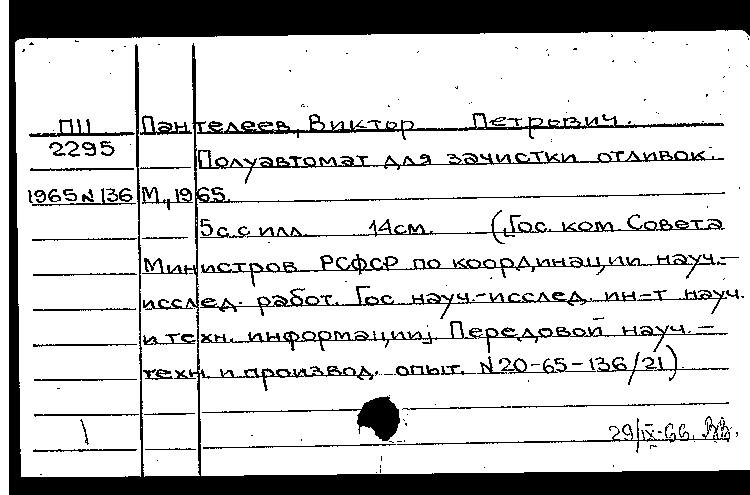 ПII Пантелеев, Виктор Петрович.
2295 Полуавтомат для зачистки отливок.
1965 N 136 М., 1965.
5 с. с илл. 14 см. (Гос. ком. Совета
Министров РСФСР по координации науч.-
исслед. работ. Гос. науч.-исслед. ин-т науч.
и техн. информации. Передовой науч.-
техн. и производ. опыт. N 20-65-136/21)
29/IX-66.